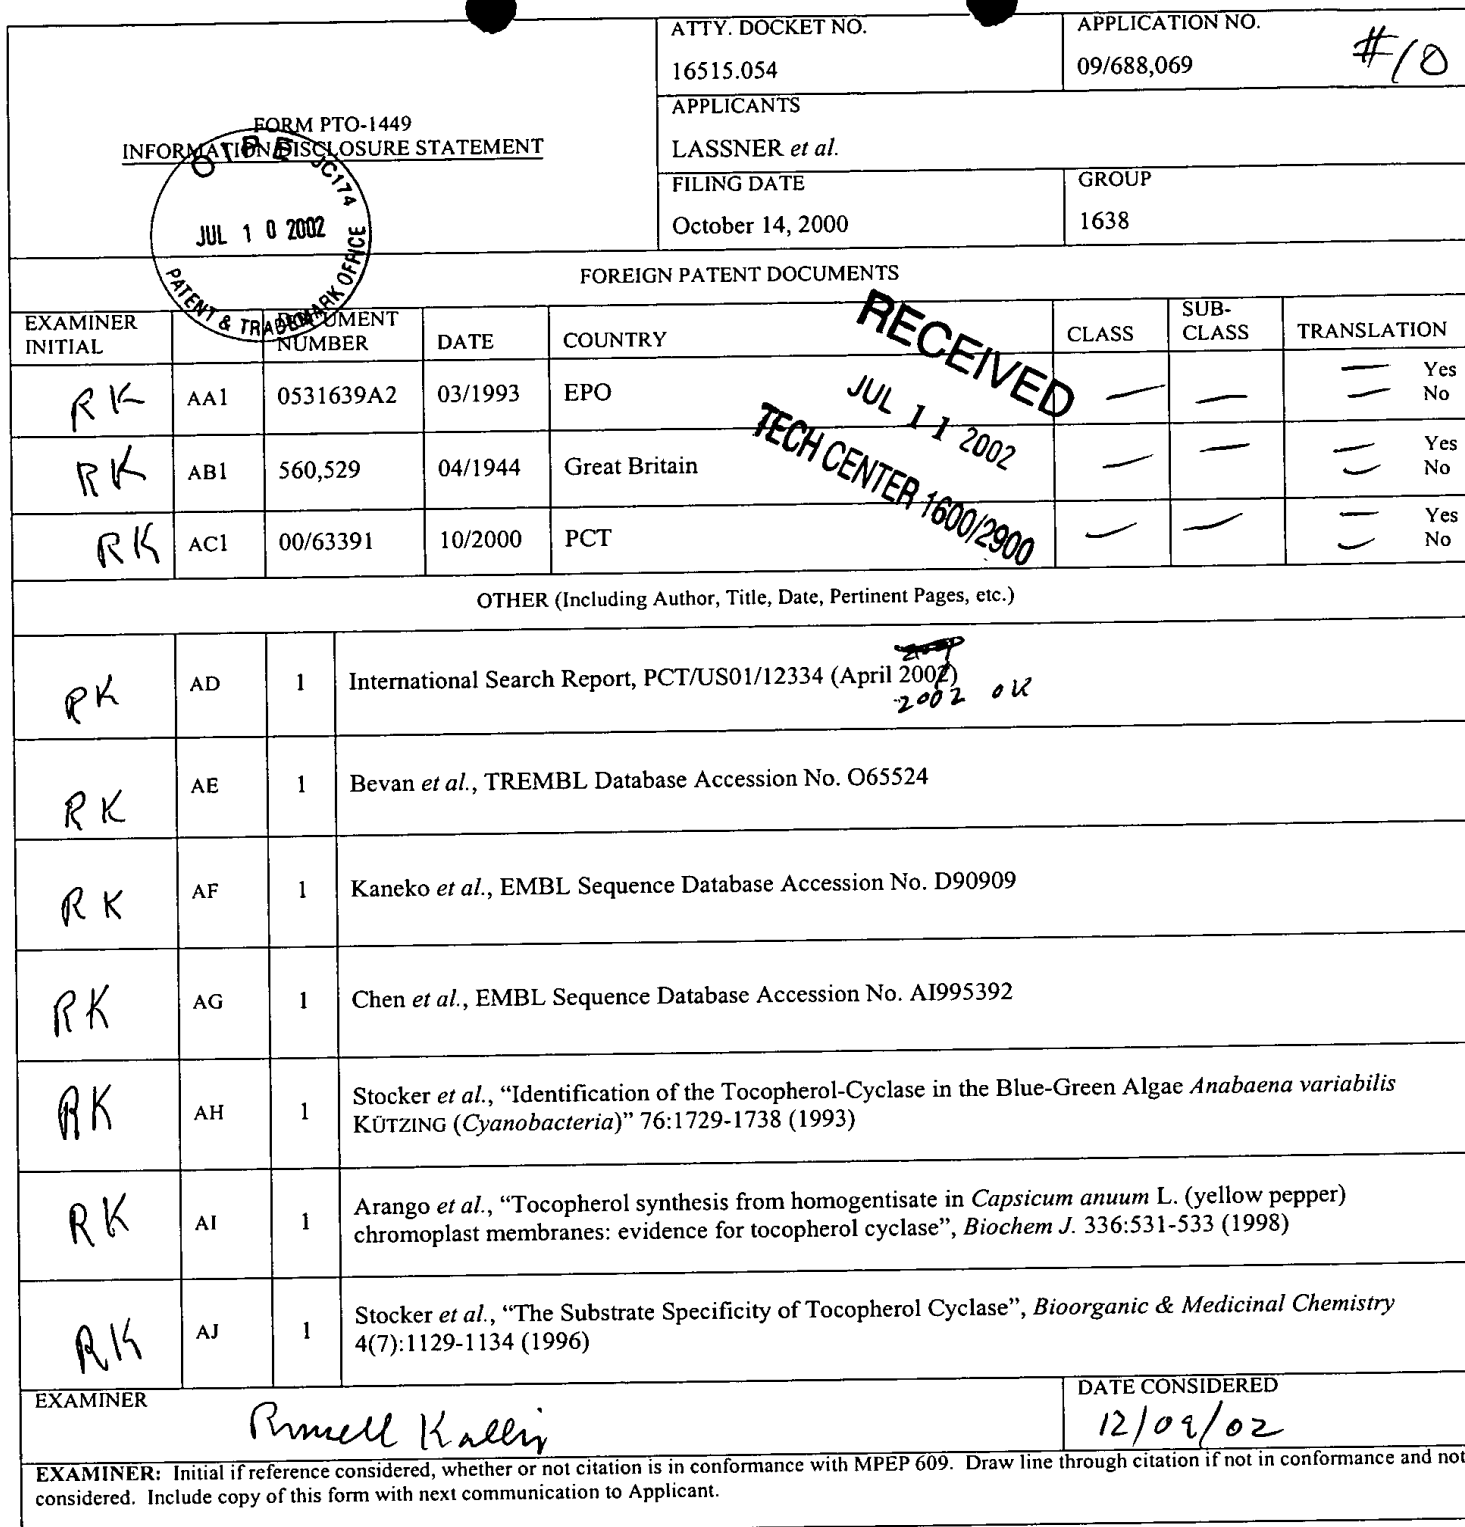 ATTY. DOCKET NO.
16515.054
APPLICATION NO.
09/688,069
#10
FORM PTO-1449
INFORMATION DISCLOSURE STATEMENT
APPLICANTS
LASSNER et al.
FILING DATE
October 14, 2000
GROUP
1638
O I P E JC174
JUL 1 0 2002
PATENT & TRADEMARK OFFICE
FOREIGN PATENT DOCUMENTS
EXAMINER INITIAL
DOCUMENT NUMBER
DATE
COUNTRY
CLASS
SUB-CLASS
TRANSLATION
RECEIVED
JUL 1 1 2002
TECH CENTER 1600/2900
RK AA1 0531639A2 03/1993 EPO — — — Yes
— No
RK AB1 560,529 04/1944 Great Britain — — — Yes
— No
RK AC1 00/63391 10/2000 PCT — — — Yes
— No
OTHER (Including Author, Title, Date, Pertinent Pages, etc.)
RK AD 1 International Search Report, PCT/US01/12334 (April 2002)
2002 OK
RK AE 1 Bevan et al., TREMBL Database Accession No. O65524
RK AF 1 Kaneko et al., EMBL Sequence Database Accession No. D90909
RK AG 1 Chen et al., EMBL Sequence Database Accession No. AI995392
RK AH 1 Stocker et al., “Identification of the Tocopherol-Cyclase in the Blue-Green Algae Anabaena variabilis
KÜTZING (Cyanobacteria)” 76:1729-1738 (1993)
RK AI 1 Arango et al., “Tocopherol synthesis from homogentisate in Capsicum anuum L. (yellow pepper)
chromoplast membranes: evidence for tocopherol cyclase”, Biochem J. 336:531-533 (1998)
RK AJ 1 Stocker et al., “The Substrate Specificity of Tocopherol Cyclase”, Bioorganic & Medicinal Chemistry
4(7):1129-1134 (1996)
EXAMINER
Russell Kallis
DATE CONSIDERED
12/09/02
EXAMINER: Initial if reference considered, whether or not citation is in conformance with MPEP 609. Draw line through citation if not in conformance and not
considered. Include copy of this form with next communication to Applicant.